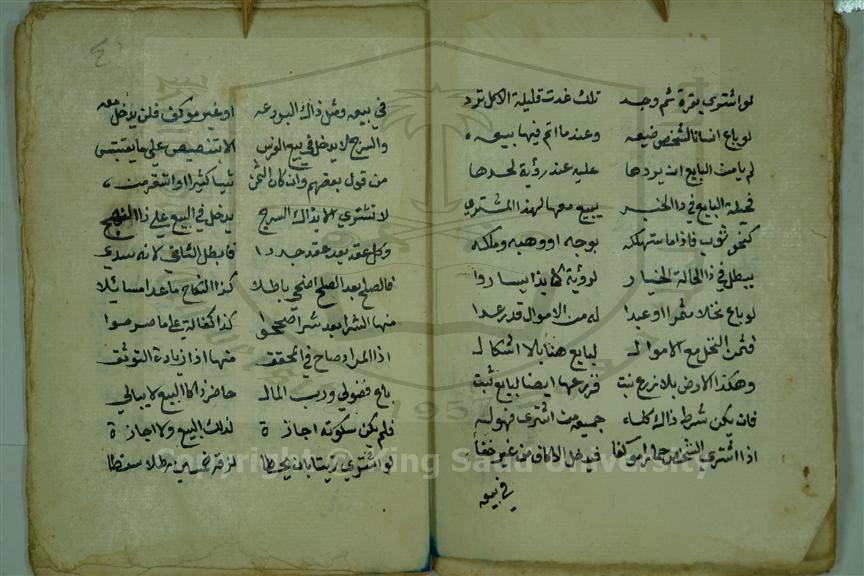 لو اشترى بقرة ثم وجد تلك غدت قليلة الاكل ترد
لو باع انسانا لشخص ضيعه وعندما اتم فيها بيعه
لم يامن البايع ان يردها عليه عند رؤية لحدها
فحيلة البايع في ذا الخبر يبيع معها لهذا المشتري
كنحو ثوب فاذا ما استهلكه بوجه او وهبه وملكه
يبطل في ذا الحالة الخيار لرؤية كما بذا
لو باع نخلا مثمرا او عبدا له من الاموال قدر عدا
فثمن النخل مع الاموال لبايع هنا بلا اشكال
وهكذا الارض بلا زرع نبت فزرعها ايضا لبايع ثبت
فان يكن شرط ذاك كله جميعه من اشترى فهو له
اذا اشترى الشخص حمارا موكفا فيدخل الاكاف من غير خفا
في بيعه
في بيعه ومثل ذاك البردعه او غير موكف فلن يدخل معه
والسرج لا يدخل في بيع الفرس الا بتنصيص على ما يقتبس
من قول بعضهم وان كان الثمن شيا كثيرا
لا تشتري الا بذاك السرج يدخل في البيع على ذا النهج
وكل عقد بعد عقد جددا فابطل الثاني لانه سدى
فالصلح بعد الصلح اضحى باطلا كذا النكاح ما عدا مسائلا
منها الشرا بعد شراء صححوا كذا كفالة على ما صرحوا
اذ المراد صاح في المحقق منها اذا زيادة التوثق
باع فضولي ورب المال حاضر ذاك البيع لا يبالي
فلم يكن سكوته اجازة لذلك البيع ولا اجازة
لو اشترى زيتا بان يحطا لزقه خمسين رطلا سقطا
King Saud University
1957